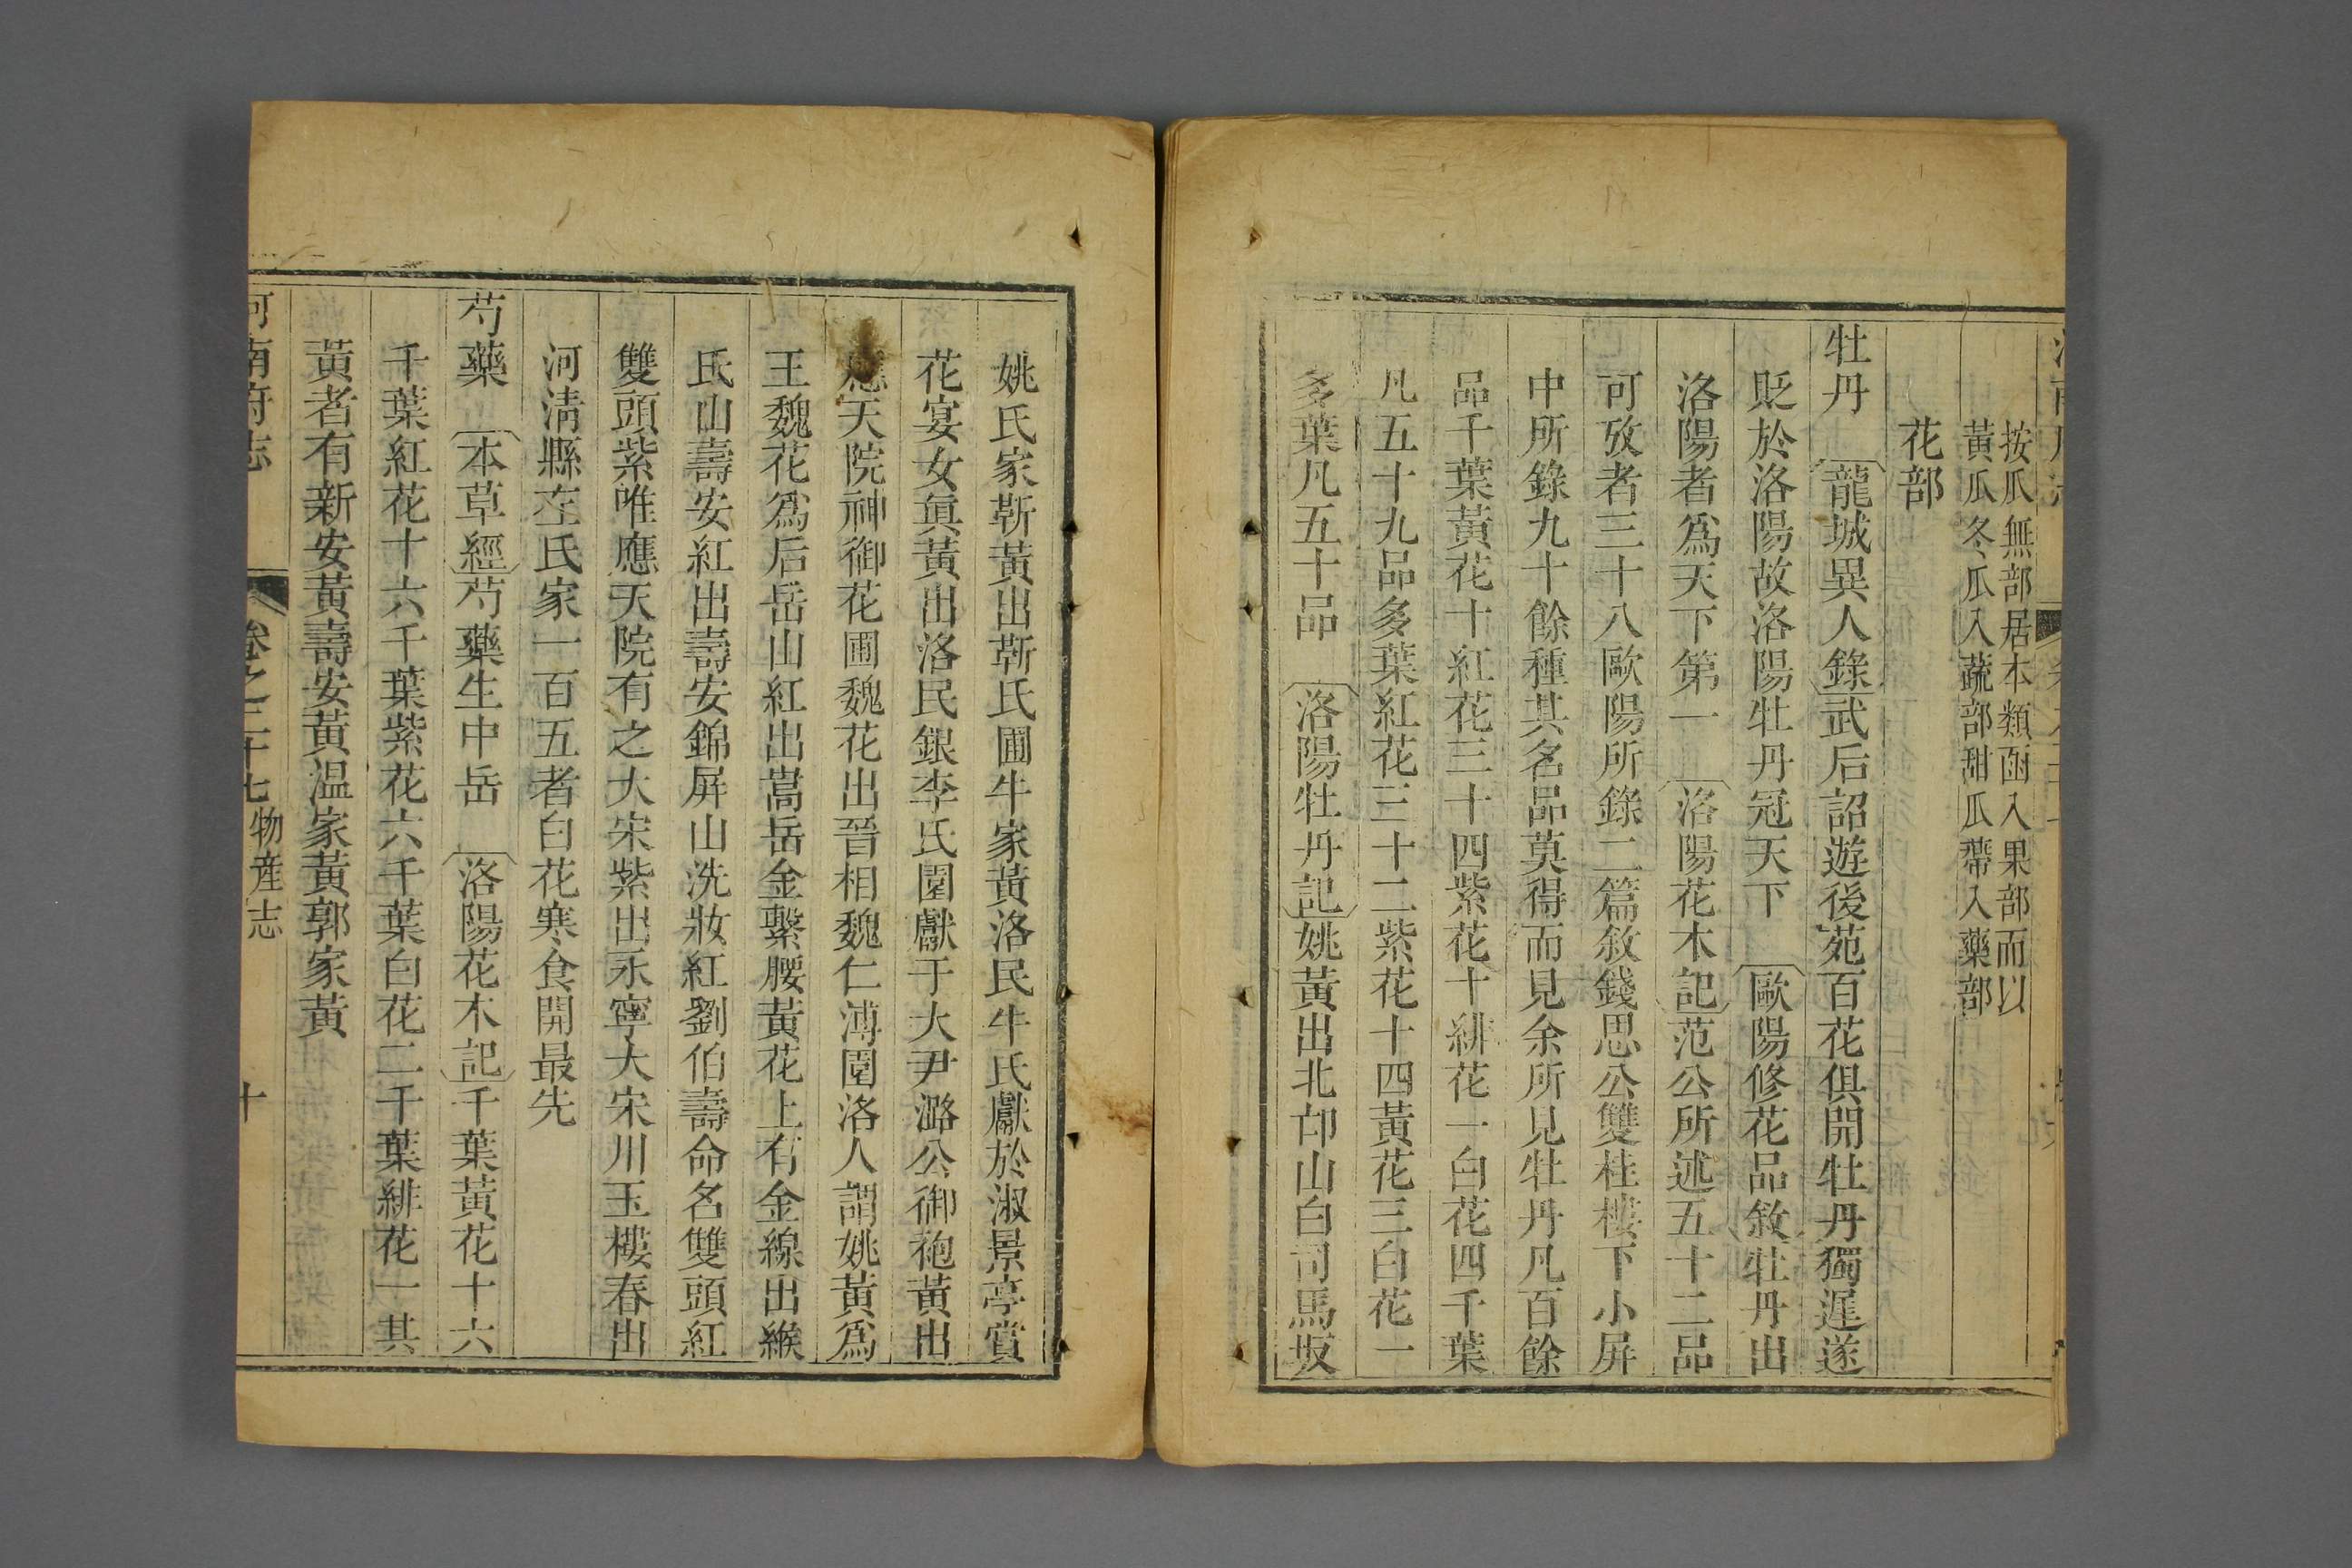 按瓜無部居本類函入果部而以
黃瓜冬瓜入蔬部甜瓜帶入藥部
花部
牡丹 龍城異人錄武后詔遊後苑百花俱開牡丹獨遲遂
貶於洛陽故洛陽牡丹冠天下 歐陽修花品敘牡丹出
洛陽者爲天下第一 洛陽花木記范公所述五十二品
可攷者三十八歐陽所錄二篇敘錢思公雙桂樓下小屏
中所錄九十餘種其名品莫得而見余所見牡丹凡百餘
品千葉黃花十紅花三十四紫花十緋花一白花四千葉
凡五十九品多葉紅花三十二紫花十四黃花三白花一
多葉凡五十品 洛陽牡丹記姚黃出北邙山白司馬坂
姚氏家靳黃出靳氏圃牛家黃洛民牛氏獻於淑景亭賞
花宴女眞黃出洛民銀李氏園獻于大尹潞公御袍黃出
應天院神御花圃魏花出晉相魏仁溥園洛人謂姚黃爲
王魏花爲后岳山紅出嵩岳金繫腰黃花上有金線出緱
氏山壽安紅出壽安錦屏山洗妝紅劉伯壽命名雙頭紅
雙頭紫唯應天院有之大宋紫出永寧大宋川玉樓春出
河清縣左氏家一百五者白花寒食開最先
芍藥 本草經芍藥生中岳 洛陽花木記千葉黃花十六
千葉紅花十六千葉紫花六千葉白花二千葉緋花一其
黃者有新安黃壽安黃温家黃郭家黃
河南府志 卷之二十七物産志 十